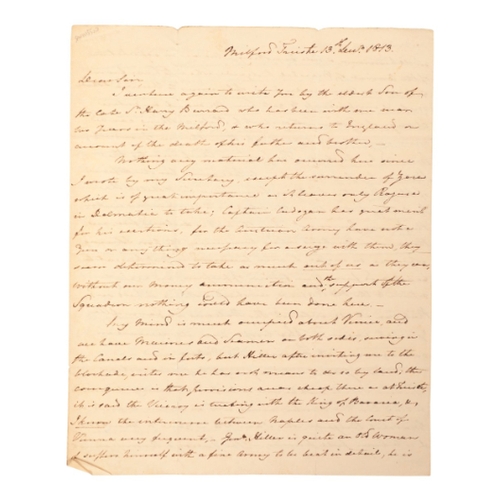 Milford Trieste 13th Decr. 1813.
Dear Sir
I venture again to write you by the eldest Son of
the late Sr. Harry Burrard who has been with me near
two years in the Milford, & who returns to England on
account of the death of his father and brother, –
Nothing very material has occurred here since
I wrote by my Secretary, except the surrender of Zara
which is of great importance as it leaves only Ragusa
in Dalmatia to take; Captain Cadogan has great merit
for his exertions, for the Austrian Army have not a
Gun or any thing necessary for a siege with them, they
seem determined to take as much out of us as they can,
without our money ammunition and the support of the
Squadron nothing could have been done here. –
My Mind is much occupied about Venice, and
we have Marines and Seamen on both sides, serving in
the Canals and in forts, but Hiller after inviting me to the
blockade, writes me he has not means to do so by land, the
consequence is that provisions are as cheap there as at Trieste,
it is said the Viceroy is treating with the King of Bavaria, &
I know the intercourse between Naples and the Court of
Vienna very frequent, – Genl. Hiller is quite an Old Woman
to suffer himself with a fine Army to be beat in detail, he is